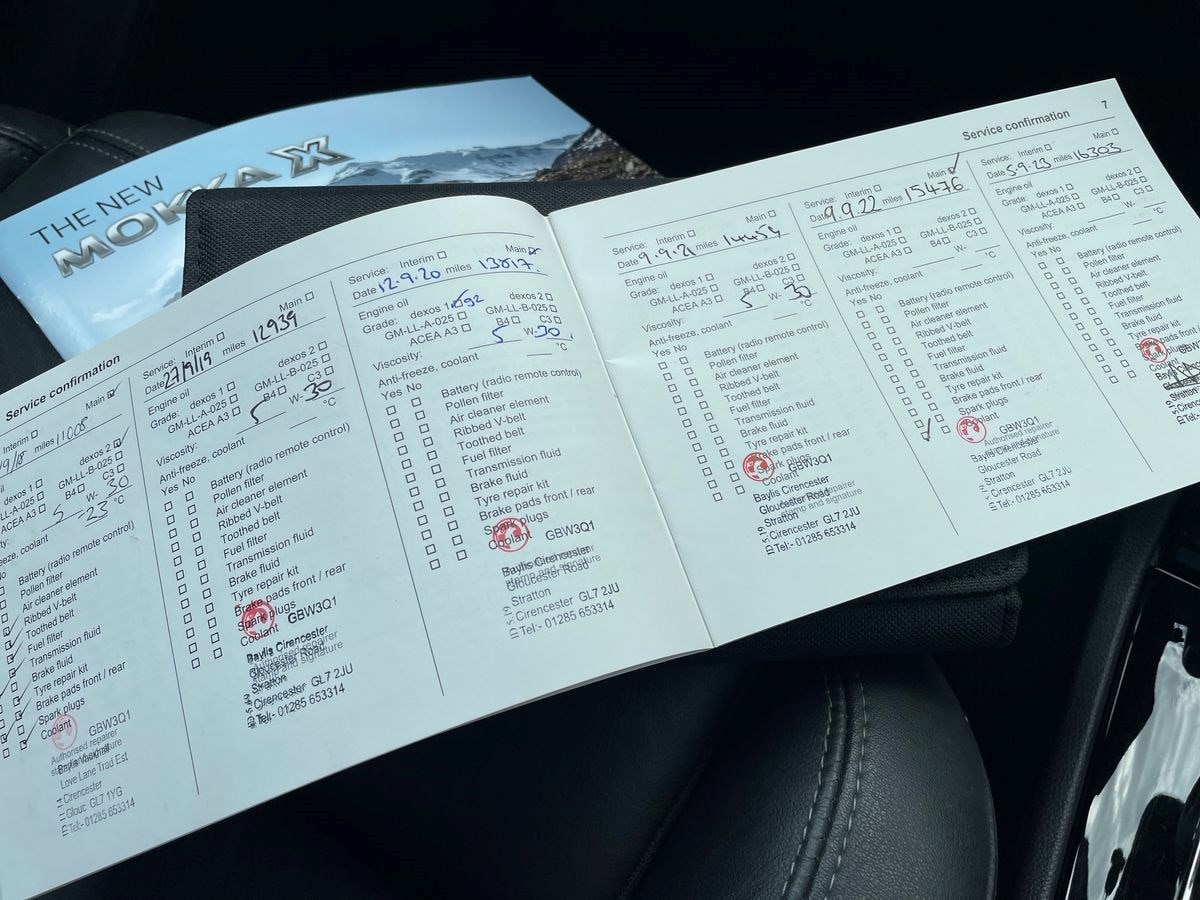 THE NEW
MOKKA X
Service confirmation
Main
Interim
miles 11008
dexos 2
dexos 1
GM-LL-B-025
GM-LL-A-025
B4 C3
ACEA A3
5 W- 30
-23 °C
Battery (radio remote control)
Pollen filter
Air cleaner element
Ribbed V-belt
Toothed belt
Fuel filter
Transmission fluid
Brake fluid
Tyre repair kit
Brake pads front / rear
Spark plugs
Coolant
GBW3Q1
Authorised repairer
stamp and signature
Love Lane Trad Est
Cirencester
Glouc GL7 1YG
Tel:- 01285 653314
Service: Interim Main
Date 27/9/19 miles 12939
Engine oil
Grade: dexos 1 dexos 2
GM-LL-A-025 GM-LL-B-025
ACEA A3 B4 C3
Viscosity: 5 W- 30
Anti-freeze, coolant °C
Yes No
Battery (radio remote control)
Pollen filter
Air cleaner element
Ribbed V-belt
Toothed belt
Fuel filter
Transmission fluid
Brake fluid
Tyre repair kit
Brake pads front / rear
Spark plugs
Coolant
GBW3Q1
Baylis Cirencester
Authorised repairer
Gloucester Road
stamp and signature
Stratton
Cirencester GL7 2JU
Tel:- 01285 653314
Service: Interim Main
Date 12.9.20 miles 13817.
Engine oil
Grade: dexos 1 dexos 2
GM-LL-A-025 GM-LL-B-025
ACEA A3 B4 C3
Viscosity: 5 W- 30
Anti-freeze, coolant °C
Yes No
Battery (radio remote control)
Pollen filter
Air cleaner element
Ribbed V-belt
Toothed belt
Fuel filter
Transmission fluid
Brake fluid
Tyre repair kit
Brake pads front / rear
Spark plugs
Coolant
GBW3Q1
Baylis Cirencester
Authorised repairer
Gloucester Road
stamp and signature
Stratton
Cirencester GL7 2JU
Tel:- 01285 653314
Service confirmation 7
Service: Interim Main
Date 9.9.21 miles 14454
Engine oil
Grade: dexos 1 dexos 2
GM-LL-A-025 GM-LL-B-025
ACEA A3 B4 C3
Viscosity: 5 W- 30
Anti-freeze, coolant °C
Yes No
Battery (radio remote control)
Pollen filter
Air cleaner element
Ribbed V-belt
Toothed belt
Fuel filter
Transmission fluid
Brake fluid
Tyre repair kit
Brake pads front / rear
Spark plugs
Coolant
GBW3Q1
Baylis Cirencester
Gloucester Road
Authorised repairer
Stratton
stamp and signature
Cirencester GL7 2JU
Tel:- 01285 653314
Service: Interim Main
Date 9.9.22 miles 15476
Engine oil
Grade: dexos 1 dexos 2
GM-LL-A-025 GM-LL-B-025
ACEA A3 B4 C3
Viscosity: W-
Anti-freeze, coolant °C
Yes No
Battery (radio remote control)
Pollen filter
Air cleaner element
Ribbed V-belt
Toothed belt
Fuel filter
Transmission fluid
Brake fluid
Tyre repair kit
Brake pads front / rear
Spark plugs
Coolant
GBW3Q1
Authorised repairer
Baylis Cirencester
stamp and signature
Gloucester Road
Stratton
Cirencester GL7 2JU
Tel:- 01285 653314
Service: Interim Main
Date 5.9.23 miles 16303
Engine oil
Grade: dexos 1 dexos 2
GM-LL-A-025 GM-LL-B-025
ACEA A3 B4 C3
Viscosity: W-
Anti-freeze, coolant °C
Yes No
Battery (radio remote
Pollen filter
Air cleaner element
Ribbed V-belt
Toothed belt
Fuel filter
Transmission fluid
Brake fluid
Tyre repair kit